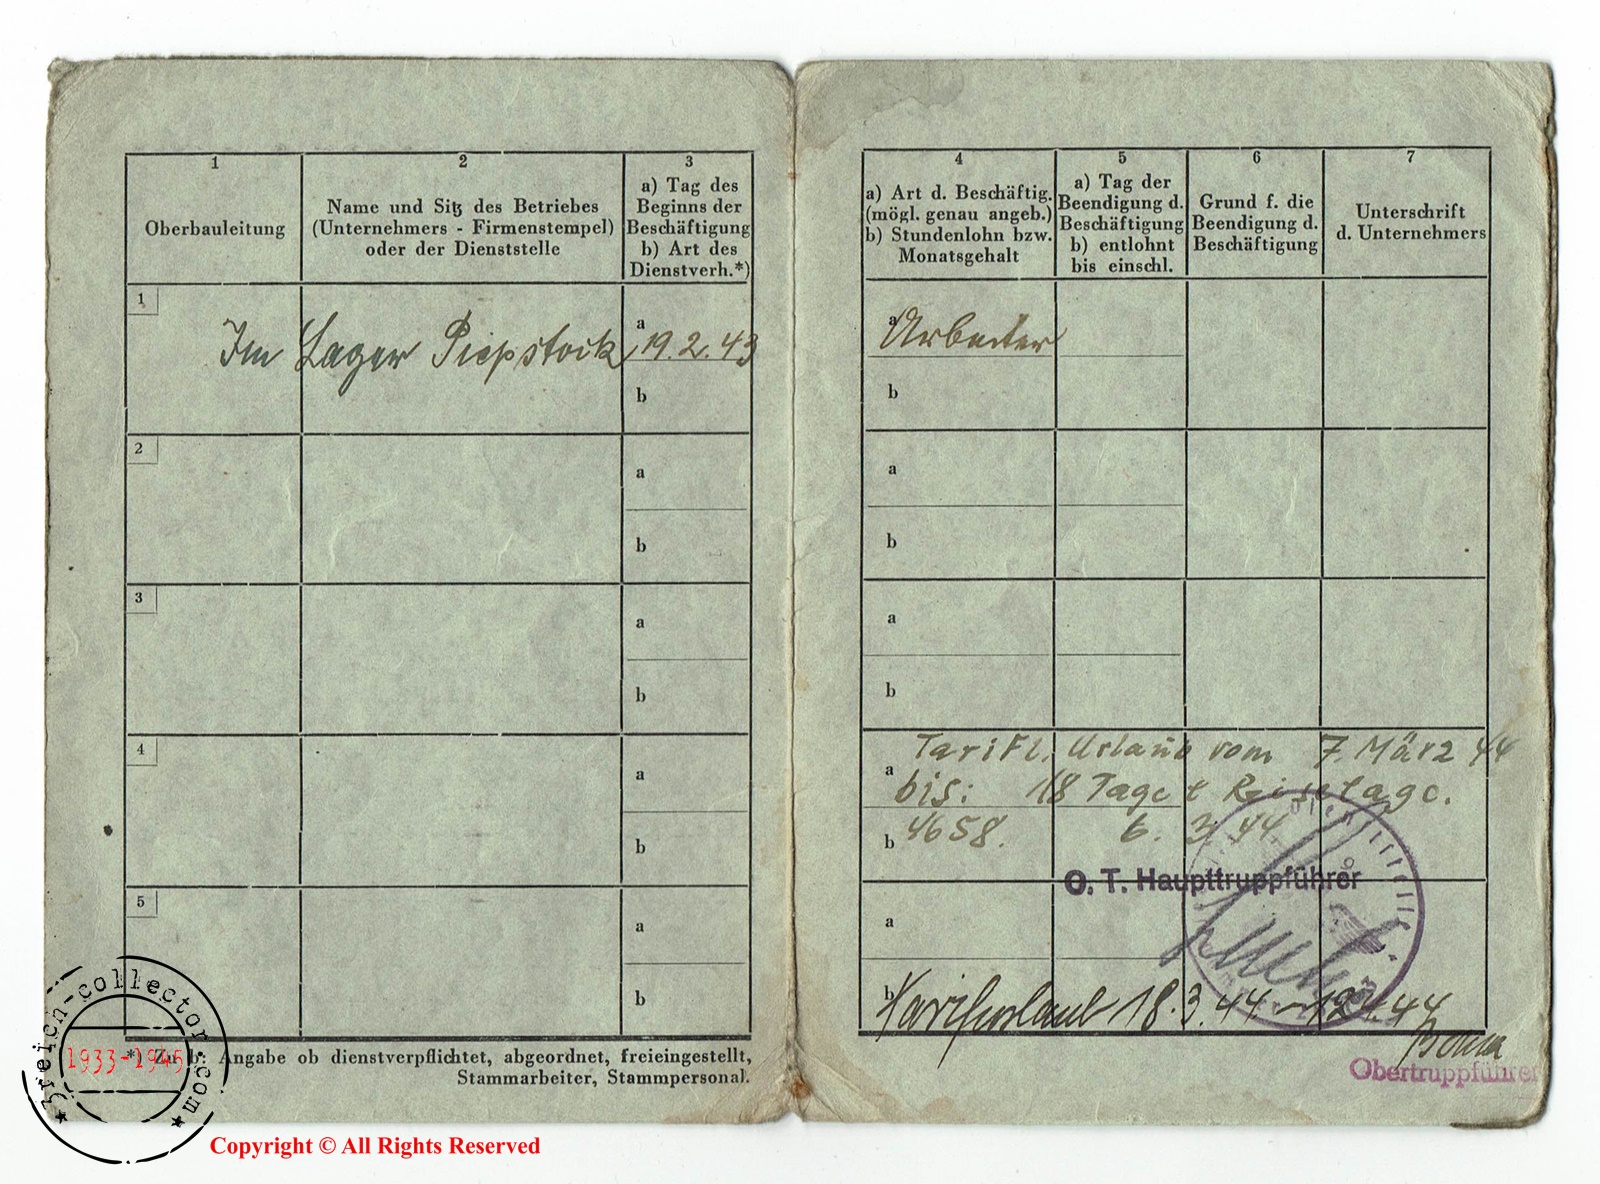 1
Oberbauleitung
2
Name und Sitz des Betriebes
(Unternehmers - Firmenstempel)
oder der Dienststelle
3
a) Tag des
Beginns der
Beschäftigung
b) Art des
Dienstverh.*)
1
Im Lager Piepstock,
a
19.2.43
b
2
a
b
3
a
b
4
a
b
5
a
b
*) Zu b: Angabe ob dienstverpflichtet, abgeordnet, freieingestellt,
Stammarbeiter, Stammpersonal.
4
a) Art d. Beschäftig.
(mögl. genau angeb.)
b) Stundenlohn bzw.
Monatsgehalt
5
a) Tag der
Beendigung d.
Beschäftigung
b) entlohnt
bis einschl.
6
Grund f. die
Beendigung d.
Beschäftigung
7
Unterschrift
d. Unternehmers
a
Arbeiter
b
a
b
a
b
Tarifl. Urlaub vom 7. März 44
a
bis: 18 Tage t Reisetage.
b
4658. 6. 3. 44
O. T. Haupttruppführer
a
b
Tarifurlaub 18.3.44 - 12.4.44
Obertruppführer
3reich-collector.com
1933-1945
Copyright © All Rights Reserved